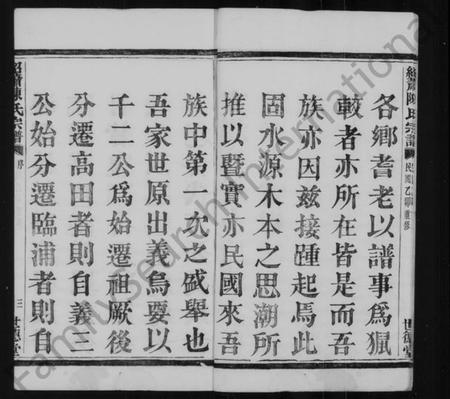 紹蕭陳氏宗譜
民國乙卯重修
世德堂
各鄉耆老以譜事為獵
較者亦所在皆是而吾
族亦因兹接踵起焉此
固水源木本之思潮所
推以暨實亦民國來吾
族中第一次之盛舉也
吾家世原出義烏要以
千二公爲始遷祖厥後
分遷高田者則自義三
公始分遷臨浦者則自
紹蕭陳氏宗譜
序
三
世德堂
FamilySearch International